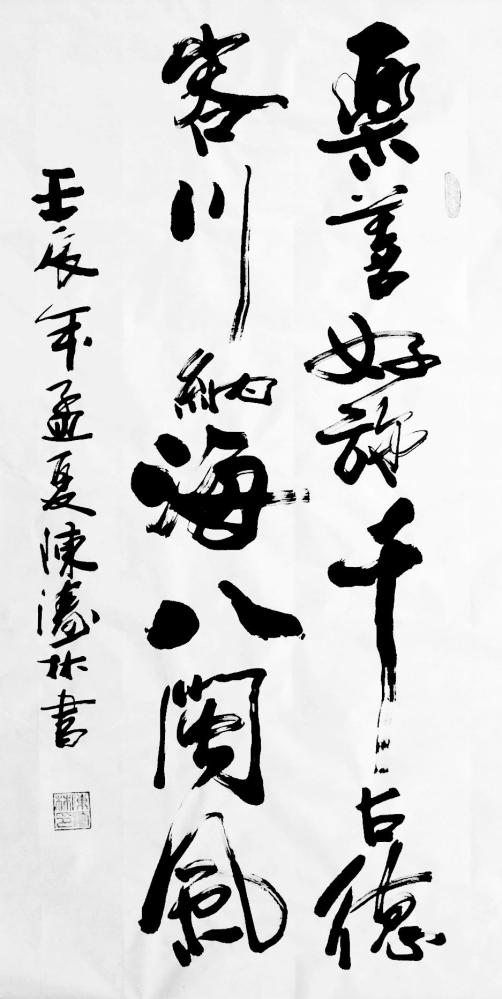 樂善好施千古德
容川納海八閩風
壬辰年孟夏陳濤林書